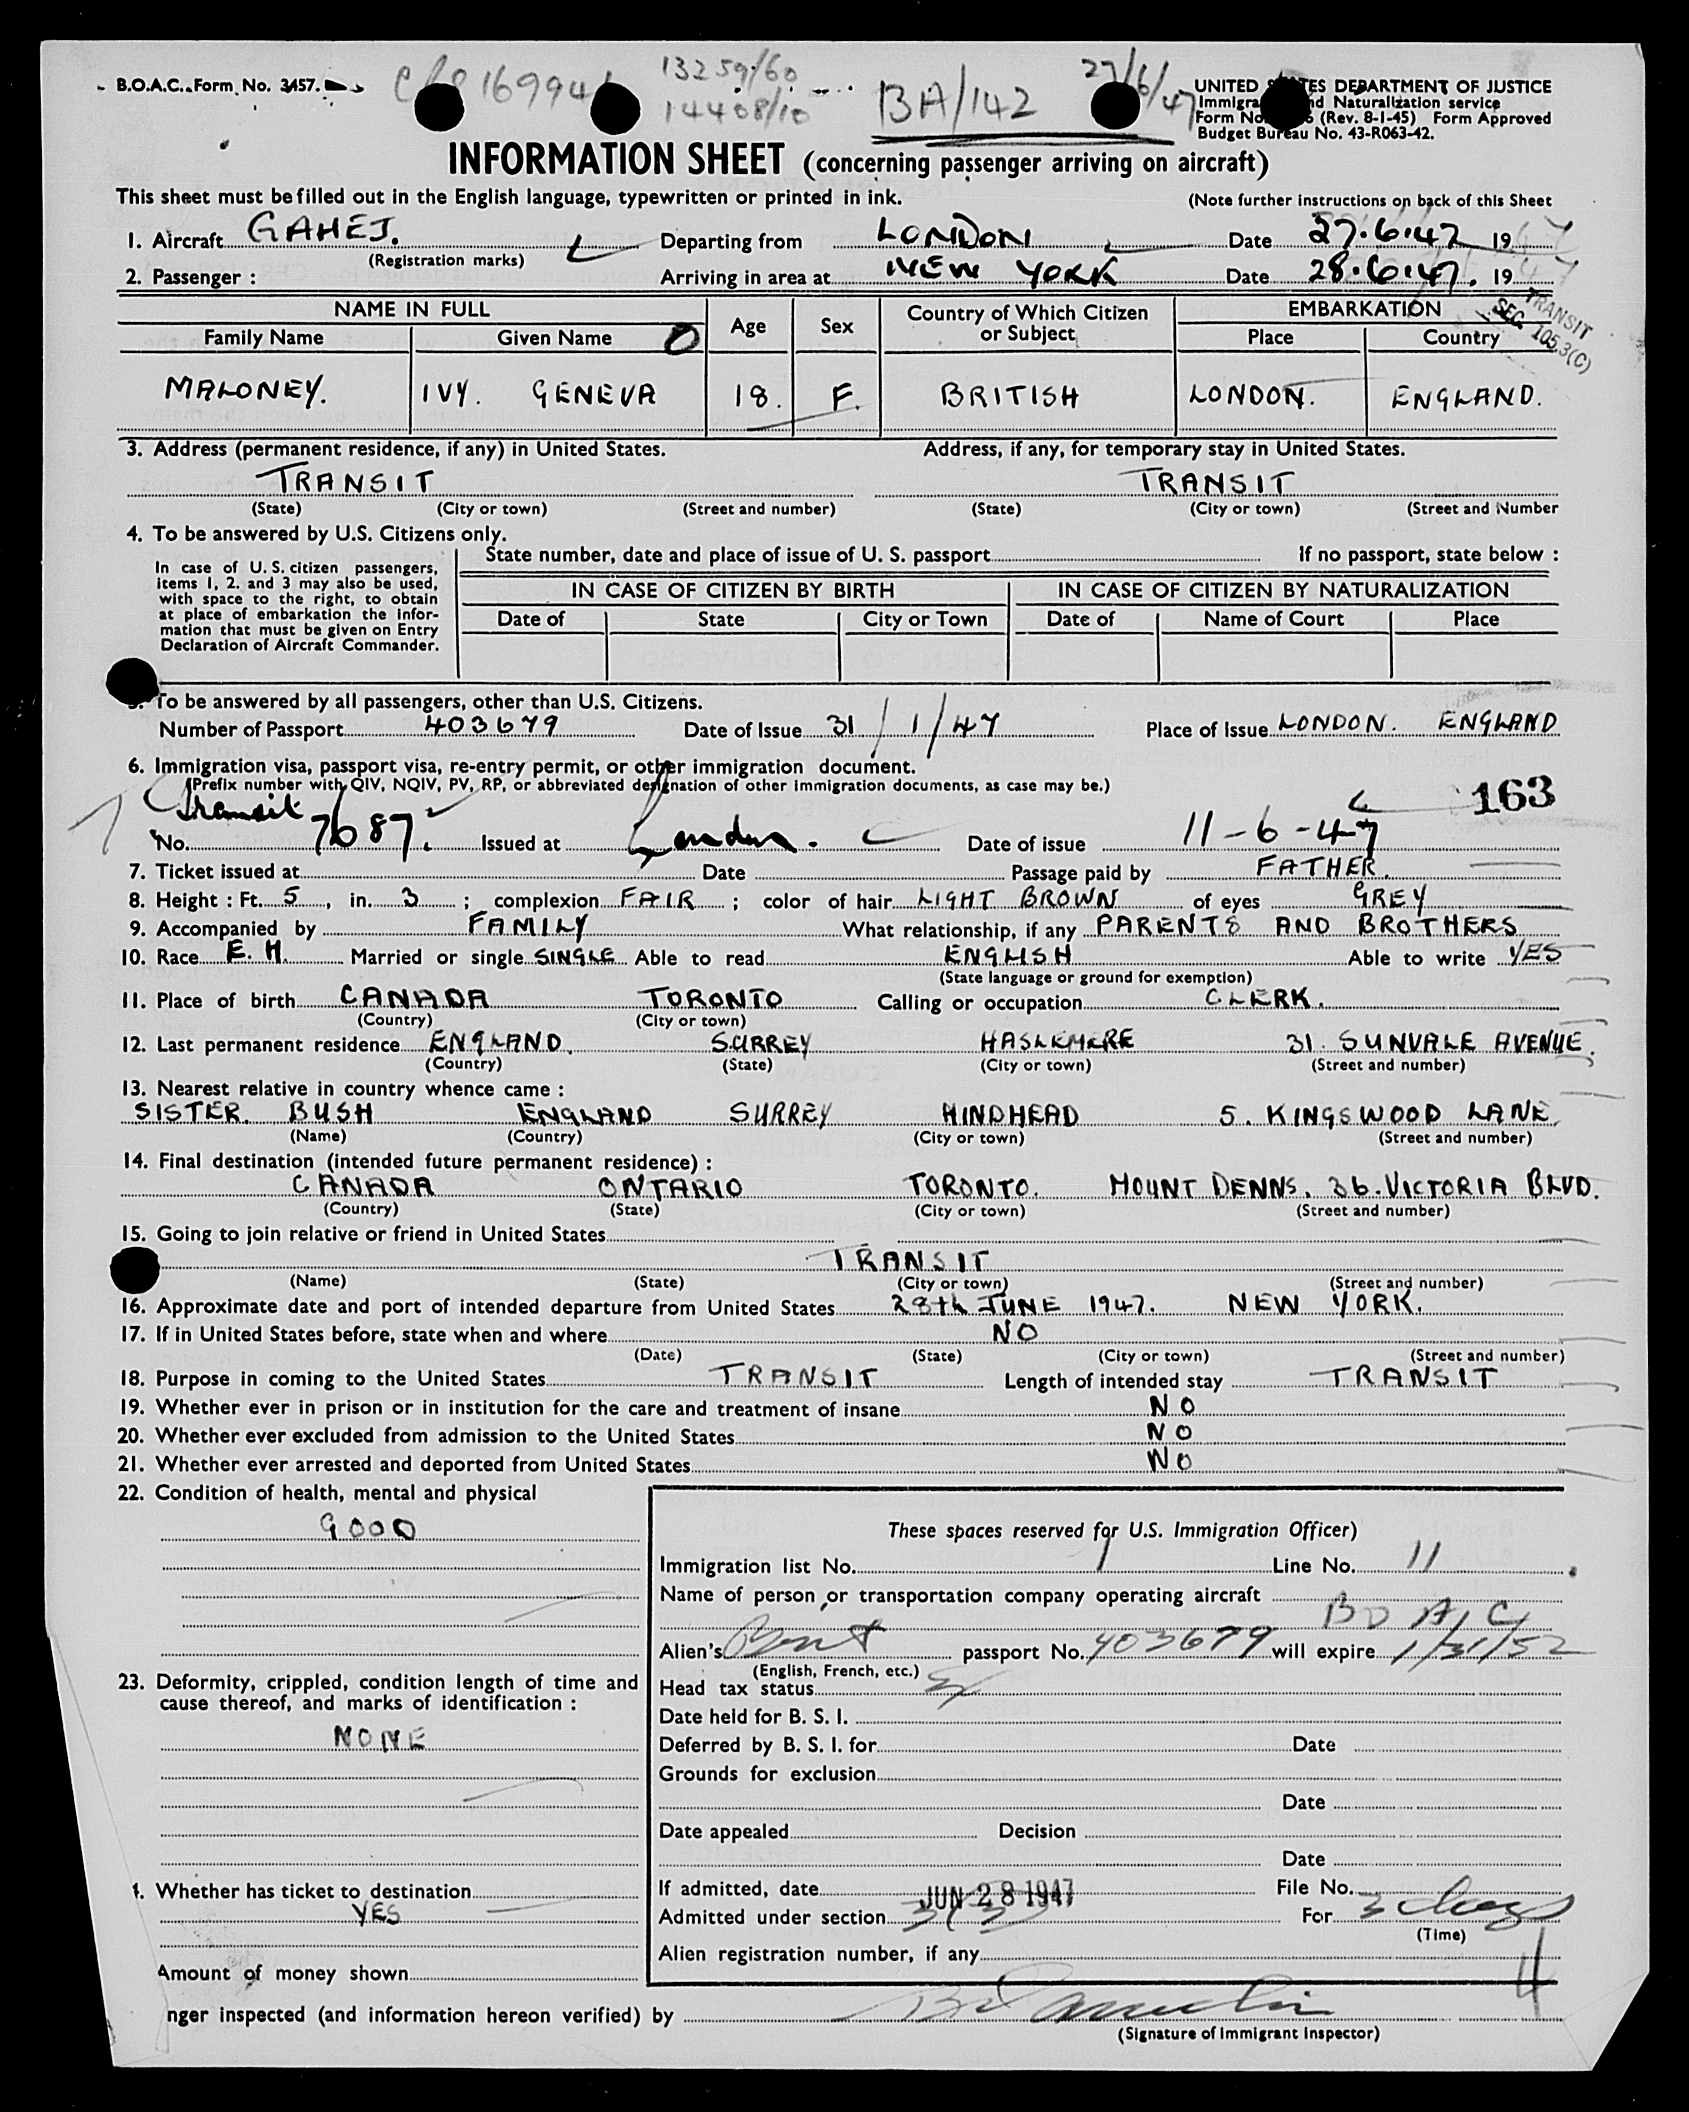 B.O.A.C. Form No. 3457.
13259/60
14408/10
BA/142
27/6/47
UNITED STATES DEPARTMENT OF JUSTICE
Immigra nd Naturalization service
Form No. (Rev. 8-1-45) Form Approved
Budget Bureau No. 43-R063-42.
INFORMATION SHEET (concerning passenger arriving on aircraft)
This sheet must be filled out in the English language, typewritten or printed in ink.
(Note further instructions on back of this Sheet
1. Aircraft GAHEJ. Departing from LONDON Date 27.6.47 19 47
(Registration marks)
2. Passenger : Arriving in area at NEW YORK Date 28.6.47. 19 47
TRANSIT
SEC. 105.3(C)
NAME IN FULL Age Sex Country of Which Citizen or Subject EMBARKATION
Family Name Given Name Place Country
MALONEY. IVY. GENEVA 18. F. BRITISH LONDON. ENGLAND.
3. Address (permanent residence, if any) in United States. Address, if any, for temporary stay in United States.
TRANSIT TRANSIT
(State) (City or town) (Street and number) (State) (City or town) (Street and Number
4. To be answered by U.S. Citizens only.
State number, date and place of issue of U. S. passport If no passport, state below :
In case of U. S. citizen passengers,
items 1, 2. and 3 may also be used,
with space to the right, to obtain
at place of embarkation the infor-
mation that must be given on Entry
Declaration of Aircraft Commander.
IN CASE OF CITIZEN BY BIRTH IN CASE OF CITIZEN BY NATURALIZATION
Date of State City or Town Date of Name of Court Place
To be answered by all passengers, other than U.S. Citizens.
Number of Passport 403679 Date of Issue 31/1/47 Place of Issue LONDON. ENGLAND
6. Immigration visa, passport visa, re-entry permit, or other immigration document.
(Prefix number with QIV, NQIV, PV, RP, or abbreviated designation of other immigration documents, as case may be.)
163
Transit
No. 7687. Issued at London. Date of issue 11-6-47
7. Ticket issued at Date Passage paid by FATHER.
8. Height : Ft. 5, in. 3 ; complexion FAIR ; color of hair LIGHT BROWN of eyes GREY
9. Accompanied by FAMILY What relationship, if any PARENTS AND BROTHERS
10. Race E. H. Married or single SINGLE Able to read ENGLISH Able to write YES
(State language or ground for exemption)
11. Place of birth CANADA TORONTO Calling or occupation CLERK.
(Country) (City or town)
12. Last permanent residence ENGLAND. SURREY HASLEMERE 31. SUNVALE AVENUE.
(Country) (State) (City or town) (Street and number)
13. Nearest relative in country whence came :
SISTER. BUSH ENGLAND SURREY HINDHEAD 5. KINGSWOOD LANE.
(Name) (Country) (City or town) (Street and number)
14. Final destination (intended future permanent residence) :
CANADA ONTARIO TORONTO. MOUNT DENNS. 36. VICTORIA BLVD.
(Country) (State) (City or town) (Street and number)
15. Going to join relative or friend in United States
TRANSIT
(Name) (State) (City or town) (Street and number)
16. Approximate date and port of intended departure from United States 28th JUNE 1947. NEW YORK.
17. If in United States before, state when and where NO
(Date) (State) (City or town) (Street and number)
18. Purpose in coming to the United States TRANSIT Length of intended stay TRANSIT
19. Whether ever in prison or in institution for the care and treatment of insane NO
20. Whether ever excluded from admission to the United States NO
21. Whether ever arrested and deported from United States NO
22. Condition of health, mental and physical
GOOD
23. Deformity, crippled, condition length of time and
cause thereof, and marks of identification :
NONE
4. Whether has ticket to destination
YES
Amount of money shown
These spaces reserved for U.S. Immigration Officer)
Immigration list No. 1 Line No. 11
Name of person or transportation company operating aircraft
BOAC
Alien's Brit passport No. 403679 will expire 1/31/52
(English, French, etc.)
Head tax status
Date held for B. S. I.
Deferred by B. S. I. for Date
Grounds for exclusion
Date
Date appealed Decision
Date
If admitted, date JUN 28 1947 File No.
Admitted under section 3(3) For 3 days
(Time)
Alien registration number, if any
4
nger inspected (and information hereon verified) by
(Signature of Immigrant Inspector)